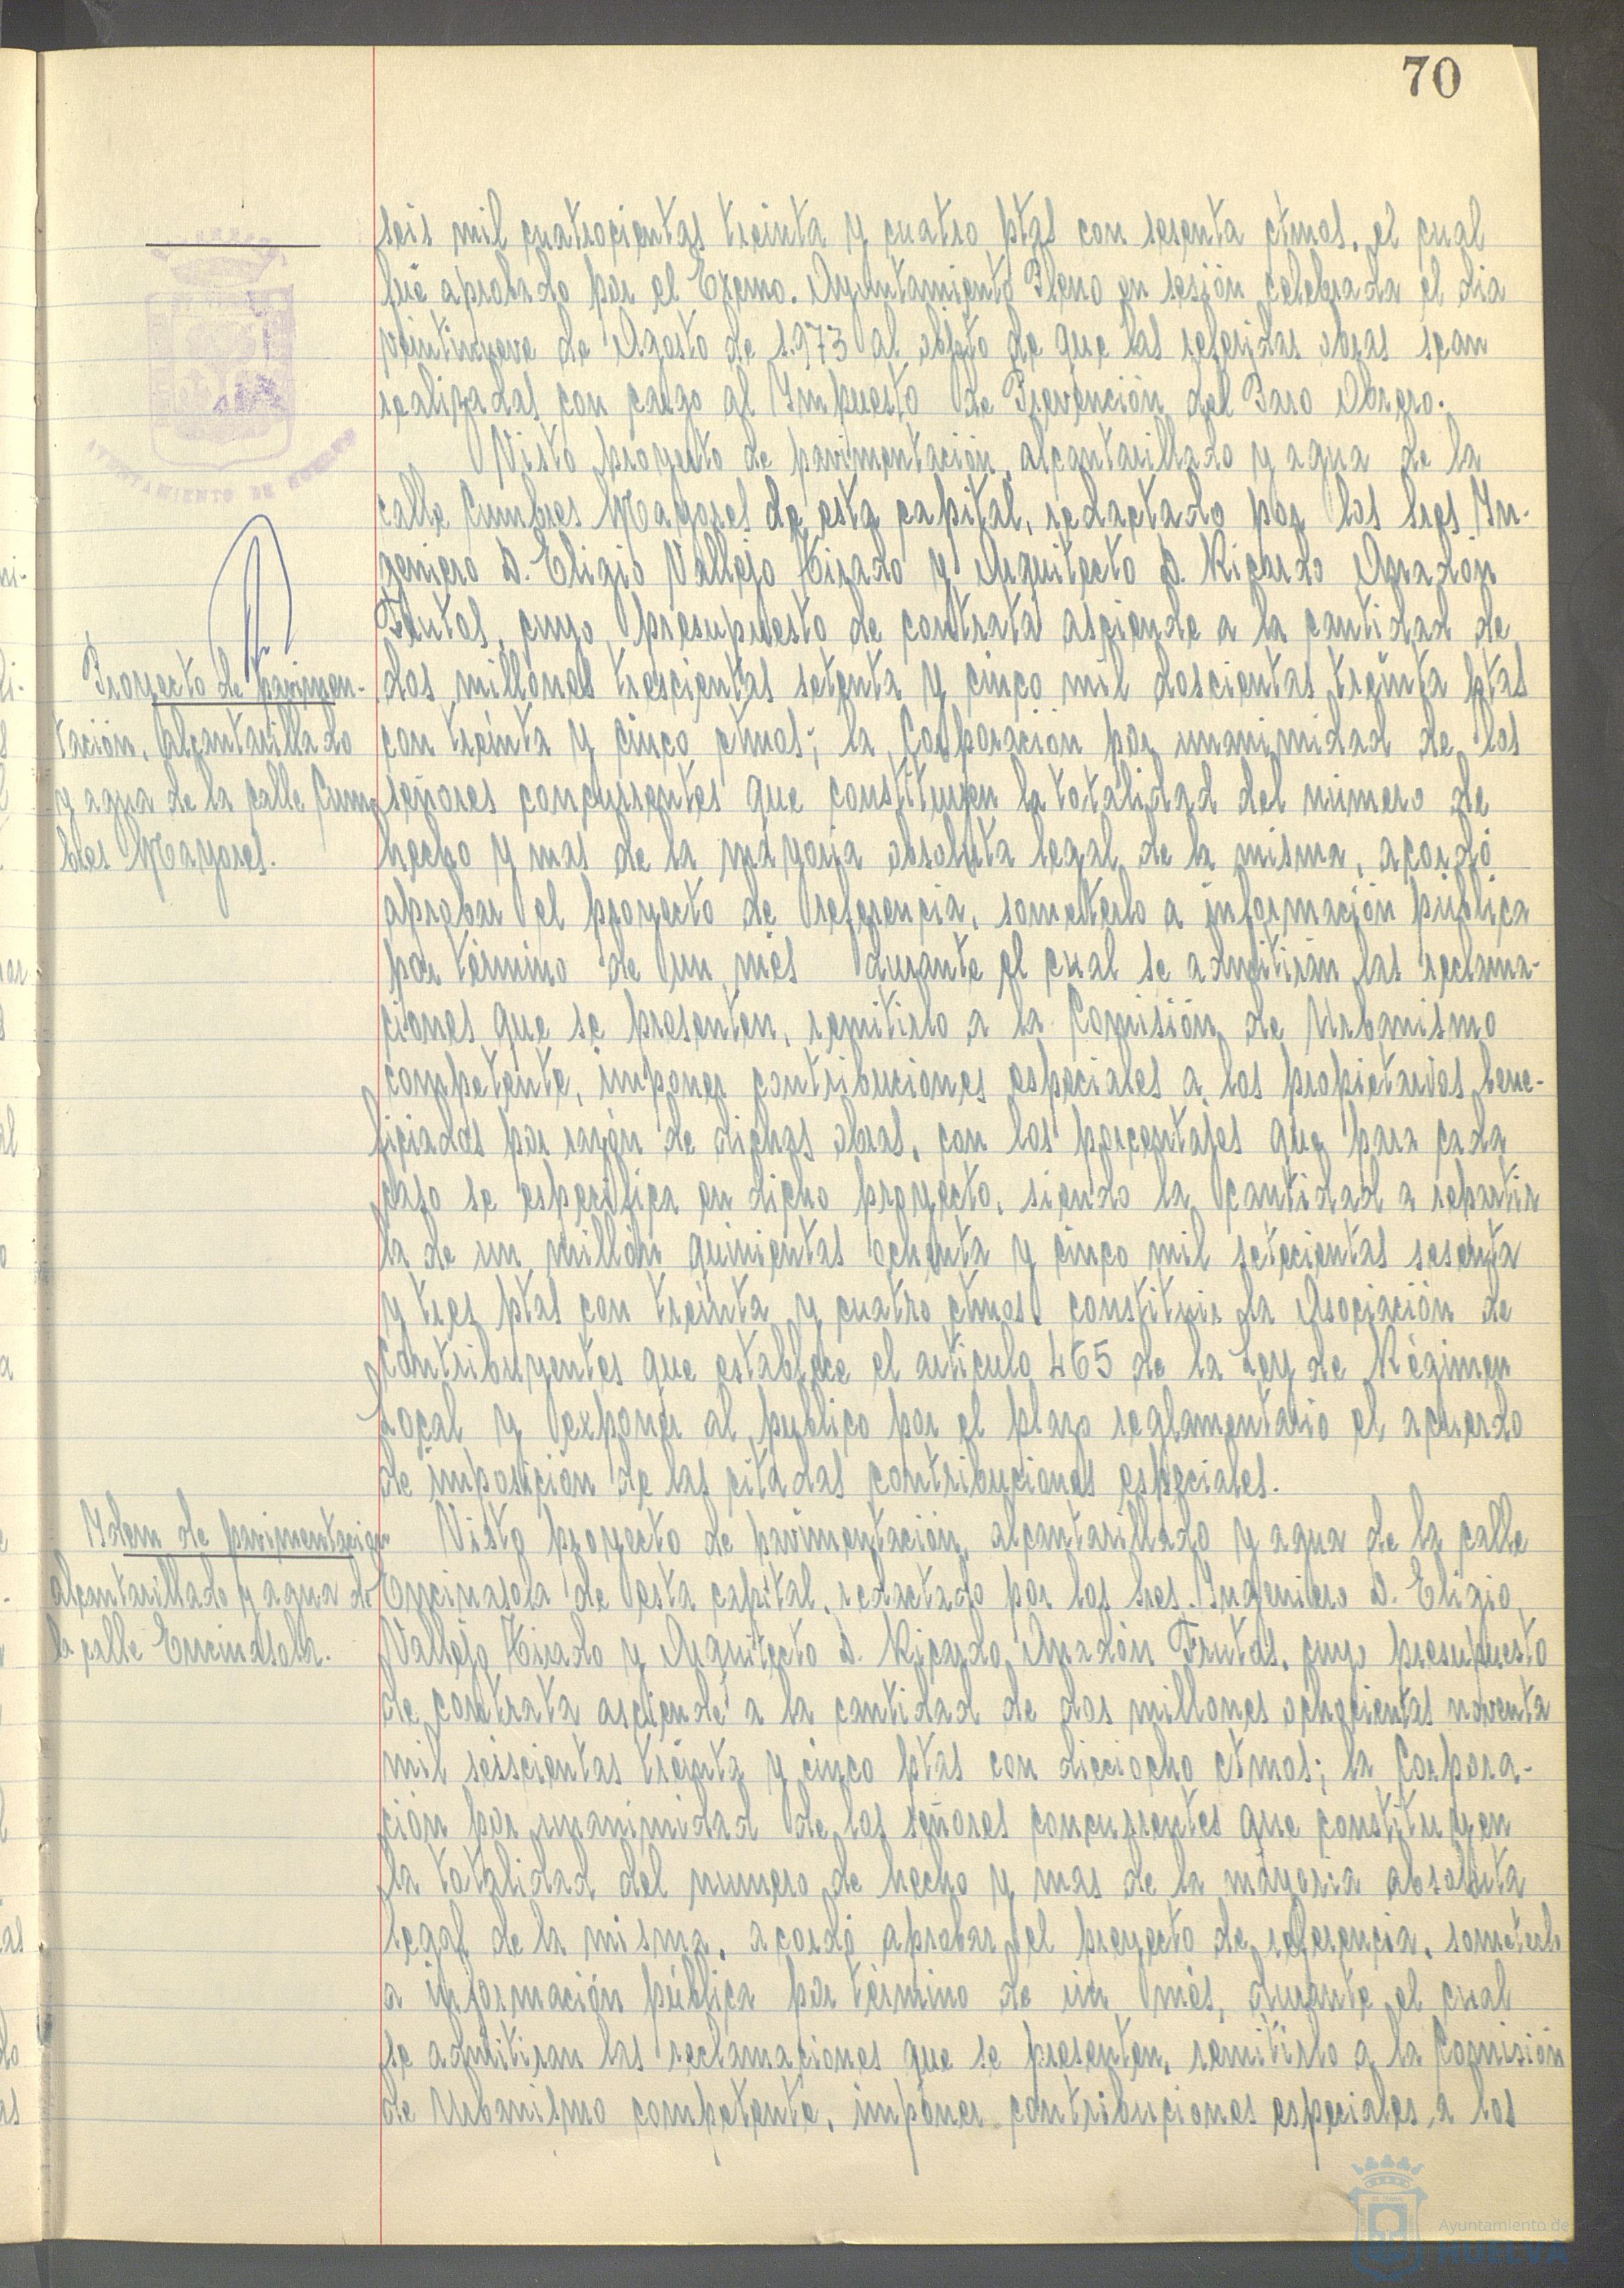 70
seis mil cuatrocientas treinta y cuatro ptas con sesenta ctmos, el cual
fué aprobado por el Excmo. Ayuntamiento Pleno en sesión celebrada el dia
veintinueve de Agosto de 1.973 al objeto de que las referidas obras sean
realizadas con cargo al Impuesto de Prevención del Paro Obrero.
AYUNTAMIENTO DE HUELVA
Visto proyecto de pavimentación, alcantarillado y agua de la
calle Cumbres Mayores de esta capital, redactado por los Sres In-
geniero D. Eligio Vallejo Tirado y Arquitecto D. Ricardo Anadón
Frutos, cuyo presupuesto de contrata asciende a la cantidad de
Proyecto de pavimen-
tación, alcantarillado
y agua de la calle Cum-
bres Mayores.
dos millones trescientas setenta y cinco mil doscientas treinta ptas
con treinta y cinco ctmos; la Corporación por unanimidad de los
señores concurrentes que constituyen la totalidad del número de
hecho y mas de la mayoria absoluta legal de la misma, acordó
aprobar el proyecto de referencia, someterlo a información pública
por término de un mes durante el cual se admitirán las reclama-
ciones que se presenten, remitirlo a la Comisión de Urbanismo
competente, imponer contribuciones especiales a los propietarios bene-
ficiados por razón de dichas obras, con los porcentajes que para cada
caso se especifica en dicho proyecto, siendo la cantidad a repartir
la de un millón quinientas ochenta y cinco mil setecientas sesenta
y tres ptas con treinta y cuatro ctmos constituir la Asociación de
Contribuyentes que establece el artículo 465 de la Ley de Régimen
Local y exponer al publico por el plazo reglamentario el acuerdo
de imposición de las citadas contribuciones especiales.
Idem de pavimentación
alcantarillado y agua de
la calle Encinasola.
Visto proyecto de pavimentación, alcantarillado y agua de la calle
Encinasola de esta capital, redactado por los Sres. Ingeniero D. Eligio
Vallejo Tirado y Arquitecto D. Ricardo Anadón Frutos, cuyo presupuesto
de contrata asciende a la cantidad de dos millones ochocientas noventa
mil seiscientas treinta y cinco ptas con dieciocho ctmos; la Corpora-
ción por unanimidad de los señores concurrentes que constituyen
la totalidad del numero de hecho y mas de la mayoria absoluta
legal de la misma, acordó aprobar el proyecto de referencia, someterlo
a información pública por término de un mes, durante el cual
se admitiran las reclamaciones que se presenten, remitirlo a la Comisión
de Urbanismo competente, imponer contribuciones especiales a los
Ayuntamiento de
HUELVA